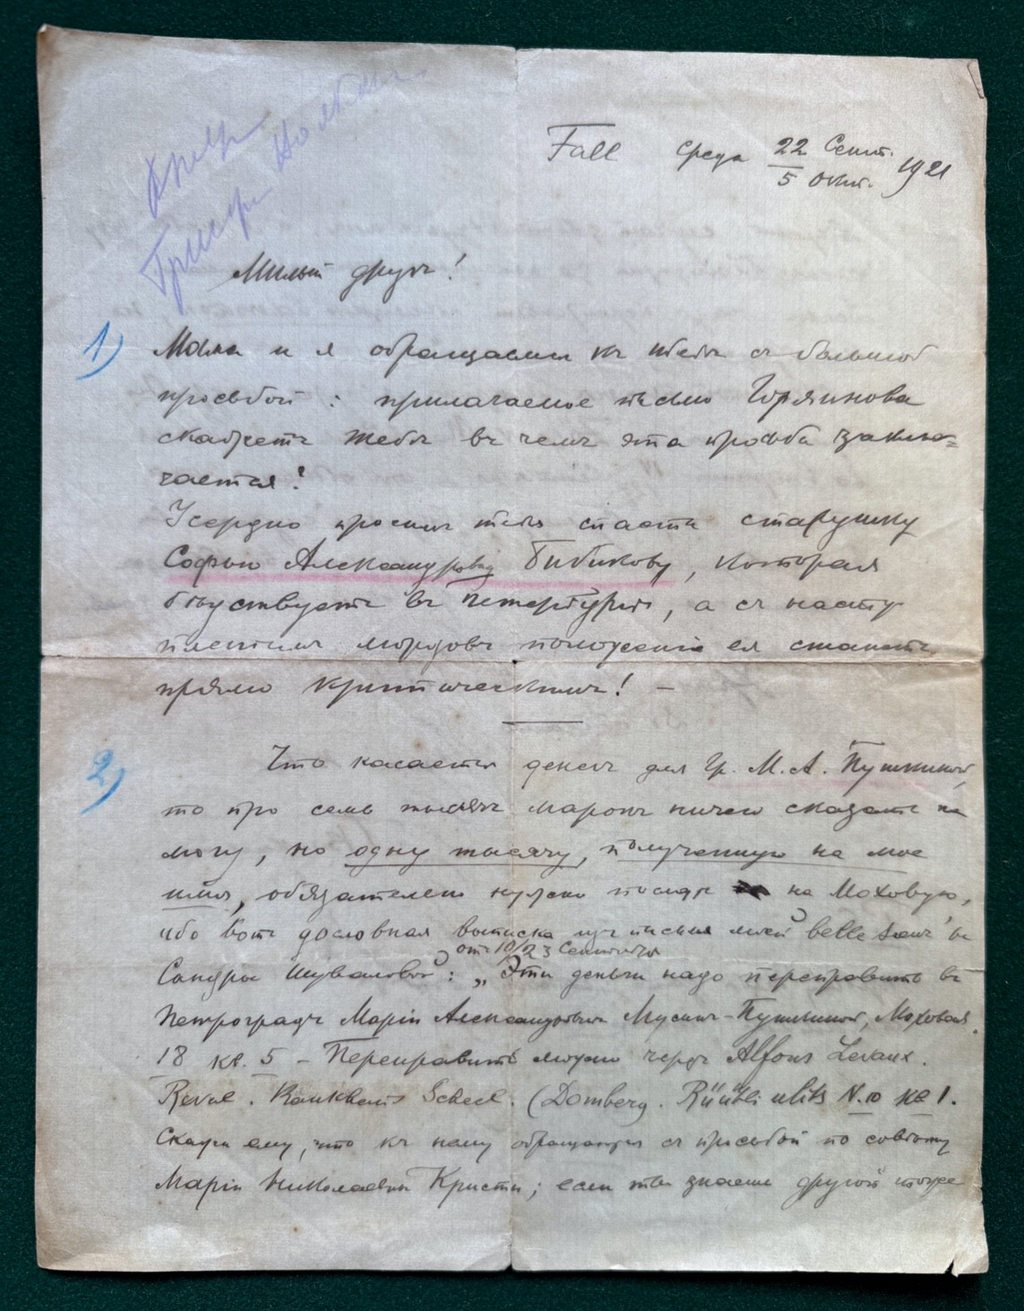 Fall среда 22 Сент. / 5 Окт. 1921
Милый другъ!
1) Мама и я обращаемся къ тебѣ съ большой
просьбой: прилагаемое письмо Горяинова
скажетъ тебѣ въ чемъ эта просьба заклю=
чается!
Усердно просимъ тебя спасти старушку
Софью Александровну Бибикову, которая
бѣдствуетъ въ Петербургѣ, а съ насту
пленіемъ морозовъ положеніе ея станетъ
прямо критическимъ! —
2) Что касается денегъ для Гр. М. А. Пушкиной,
то про семь тысячъ марокъ ничего сказать не
могу, но одну тысячу, полученную на мое
имя, обязательно нужно послать на Моховую,
ибо вотъ дословная выписка изъ письма моей belle soeur
отъ 10/23 Сентября
Сандры Шуваловой: „Эти деньги надо переправить въ
Петроградъ Маріи Александровнѣ Мусинъ-Пушкиной, Моховая
18 кв. 5 — Переправить можно черезъ Alfons Levaux.
Reval. Bankhaus Scheel. (Domberg. Rüütli ulits N. 10 кв 1.
Скажи ему, что къ нему обращаются съ просьбой по совѣту
Маріи Николаевны Кристи; если ты знаешь другой тоже